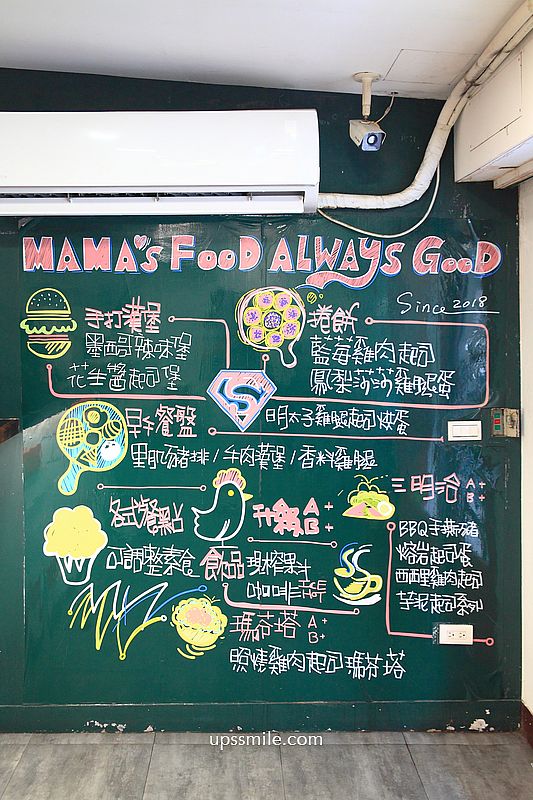 MAMA'S FOOD ALWAYS GOOD
Since 2018
手打漢堡
墨西哥辣味堡
花生醬起司堡
捲餅
藍莓雞肉起司
鳳梨莎莎雞腿蛋
S
早午餐盤
明太子雞腿起司烘蛋
里肌豬排/牛肉漢堡/香料雞腿
各式餐點
可調整素食
升級 A+ B+
食品 現榨果汁
咖啡 ICE HOT
三明治 A+ B+
BBQ手撕豬
熔岩起司蛋
西西里雞肉起司
芋泥起司系列
瑪芬塔 A+ B+
照燒雞肉起司瑪芬塔
upssmile.com